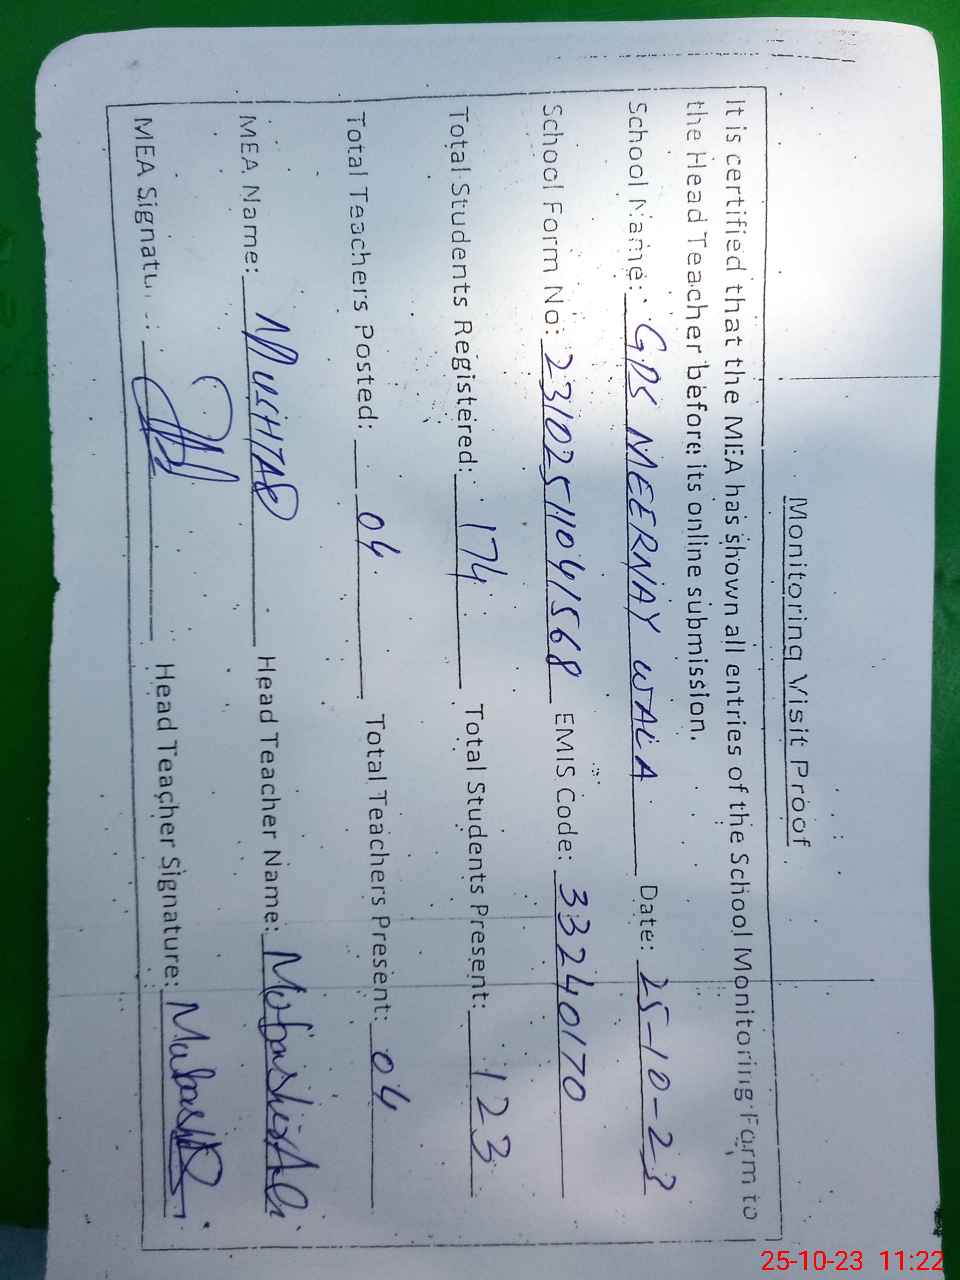 Monitoring Visit Proof
It is certified that the MEA has shown all entries of the School Monitoring Form to
the Head Teacher before its online submission.
School Name: GPS MEERNAY WALA Date: 25-10-23
School Form No: 23102511041568 EMIS Code: 33240170
Total Students Registered: 174 Total Students Present: 123
Total Teachers Posted: 04 Total Teachers Present: 04
MEA Name: MUSHTAQ Head Teacher Name: Mobashir Ali
MEA Signatu Head Teacher Signature:
25-10-23 11:22